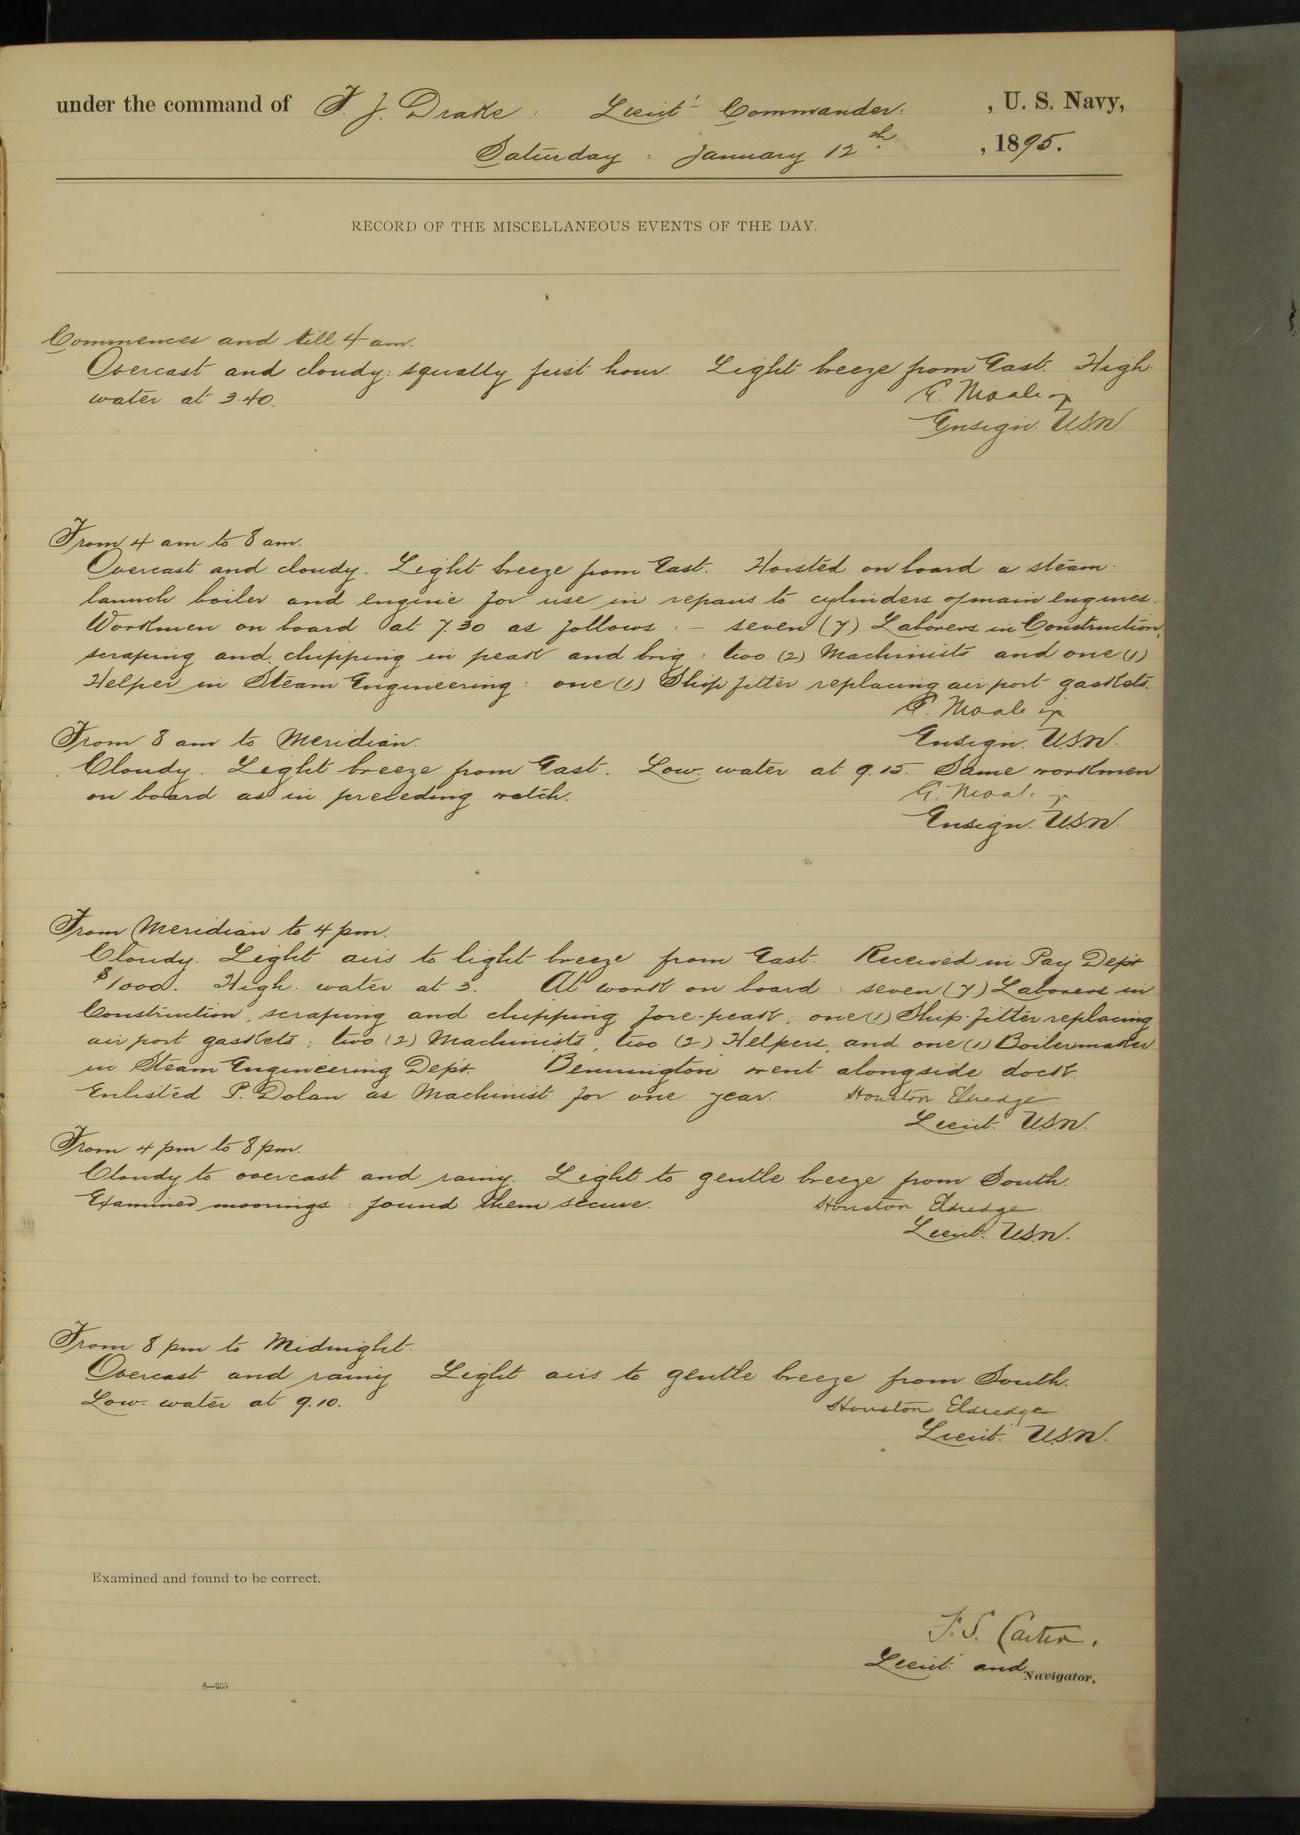 under the command of F. J. Drake : Lieut- Commander. , U. S. Navy,
Saturday : January 12th. , 1895.
RECORD OF THE MISCELLANEOUS EVENTS OF THE DAY.
Commences and till 4 am.
Overcast and cloudy: squally first hour Light breeze from East. High
water at 3.40. E. Moale jr
Ensign. U.S.N.
From 4 am to 8 am.
Overcast and cloudy. Light breeze from East. Hoisted on board a steam
launch boiler and engine for use in repairs to cylinders of main engines.
Workmen on board at 7.30 as follows :- seven (7) Laborers in Construction,
scraping and chipping in peak and brig : two (2) Machinists and one (1)
Helper in Steam Engineering : one (1) Ship fitter replacing air port gaskets.
E. Moale jr
From 8 am to Meridian. Ensign. U.S.N.
Cloudy. Light breeze from East. Low water at 9.15. Same workmen
on board as in preceding watch. E. Moale jr
Ensign. U.S.N.
From Meridian to 4 pm.
Cloudy. Light airs to light breeze from East. Received in Pay Dep't
$1000. High water at 3. At work on board : seven (7) Laborers in
Construction, scraping and chipping fore-peak; one (1) Ship-fitter replacing
air port gaskets; two (2) Machinists, two (2) Helpers, and one (1) Boilermaker
in Steam Engineering Dep't. Bennington went alongside dock.
Enlisted P. Dolan as Machinist for one year. Houston Eldredge
Lieut. U.S.N.
From 4 pm to 8 pm.
Cloudy to overcast and rainy. Light to gentle breeze from South.
Examined moorings : found them secure. Houston Eldredge.
Lieut. U.S.N.
From 8 pm to Midnight.
Overcast and rainy Light airs to gentle breeze from South.
Low water at 9.10. Houston Eldredge
Lieut. U.S.N.
Examined and found to be correct.
F. S. Carter.
Lieut. and Navigator.
4—265